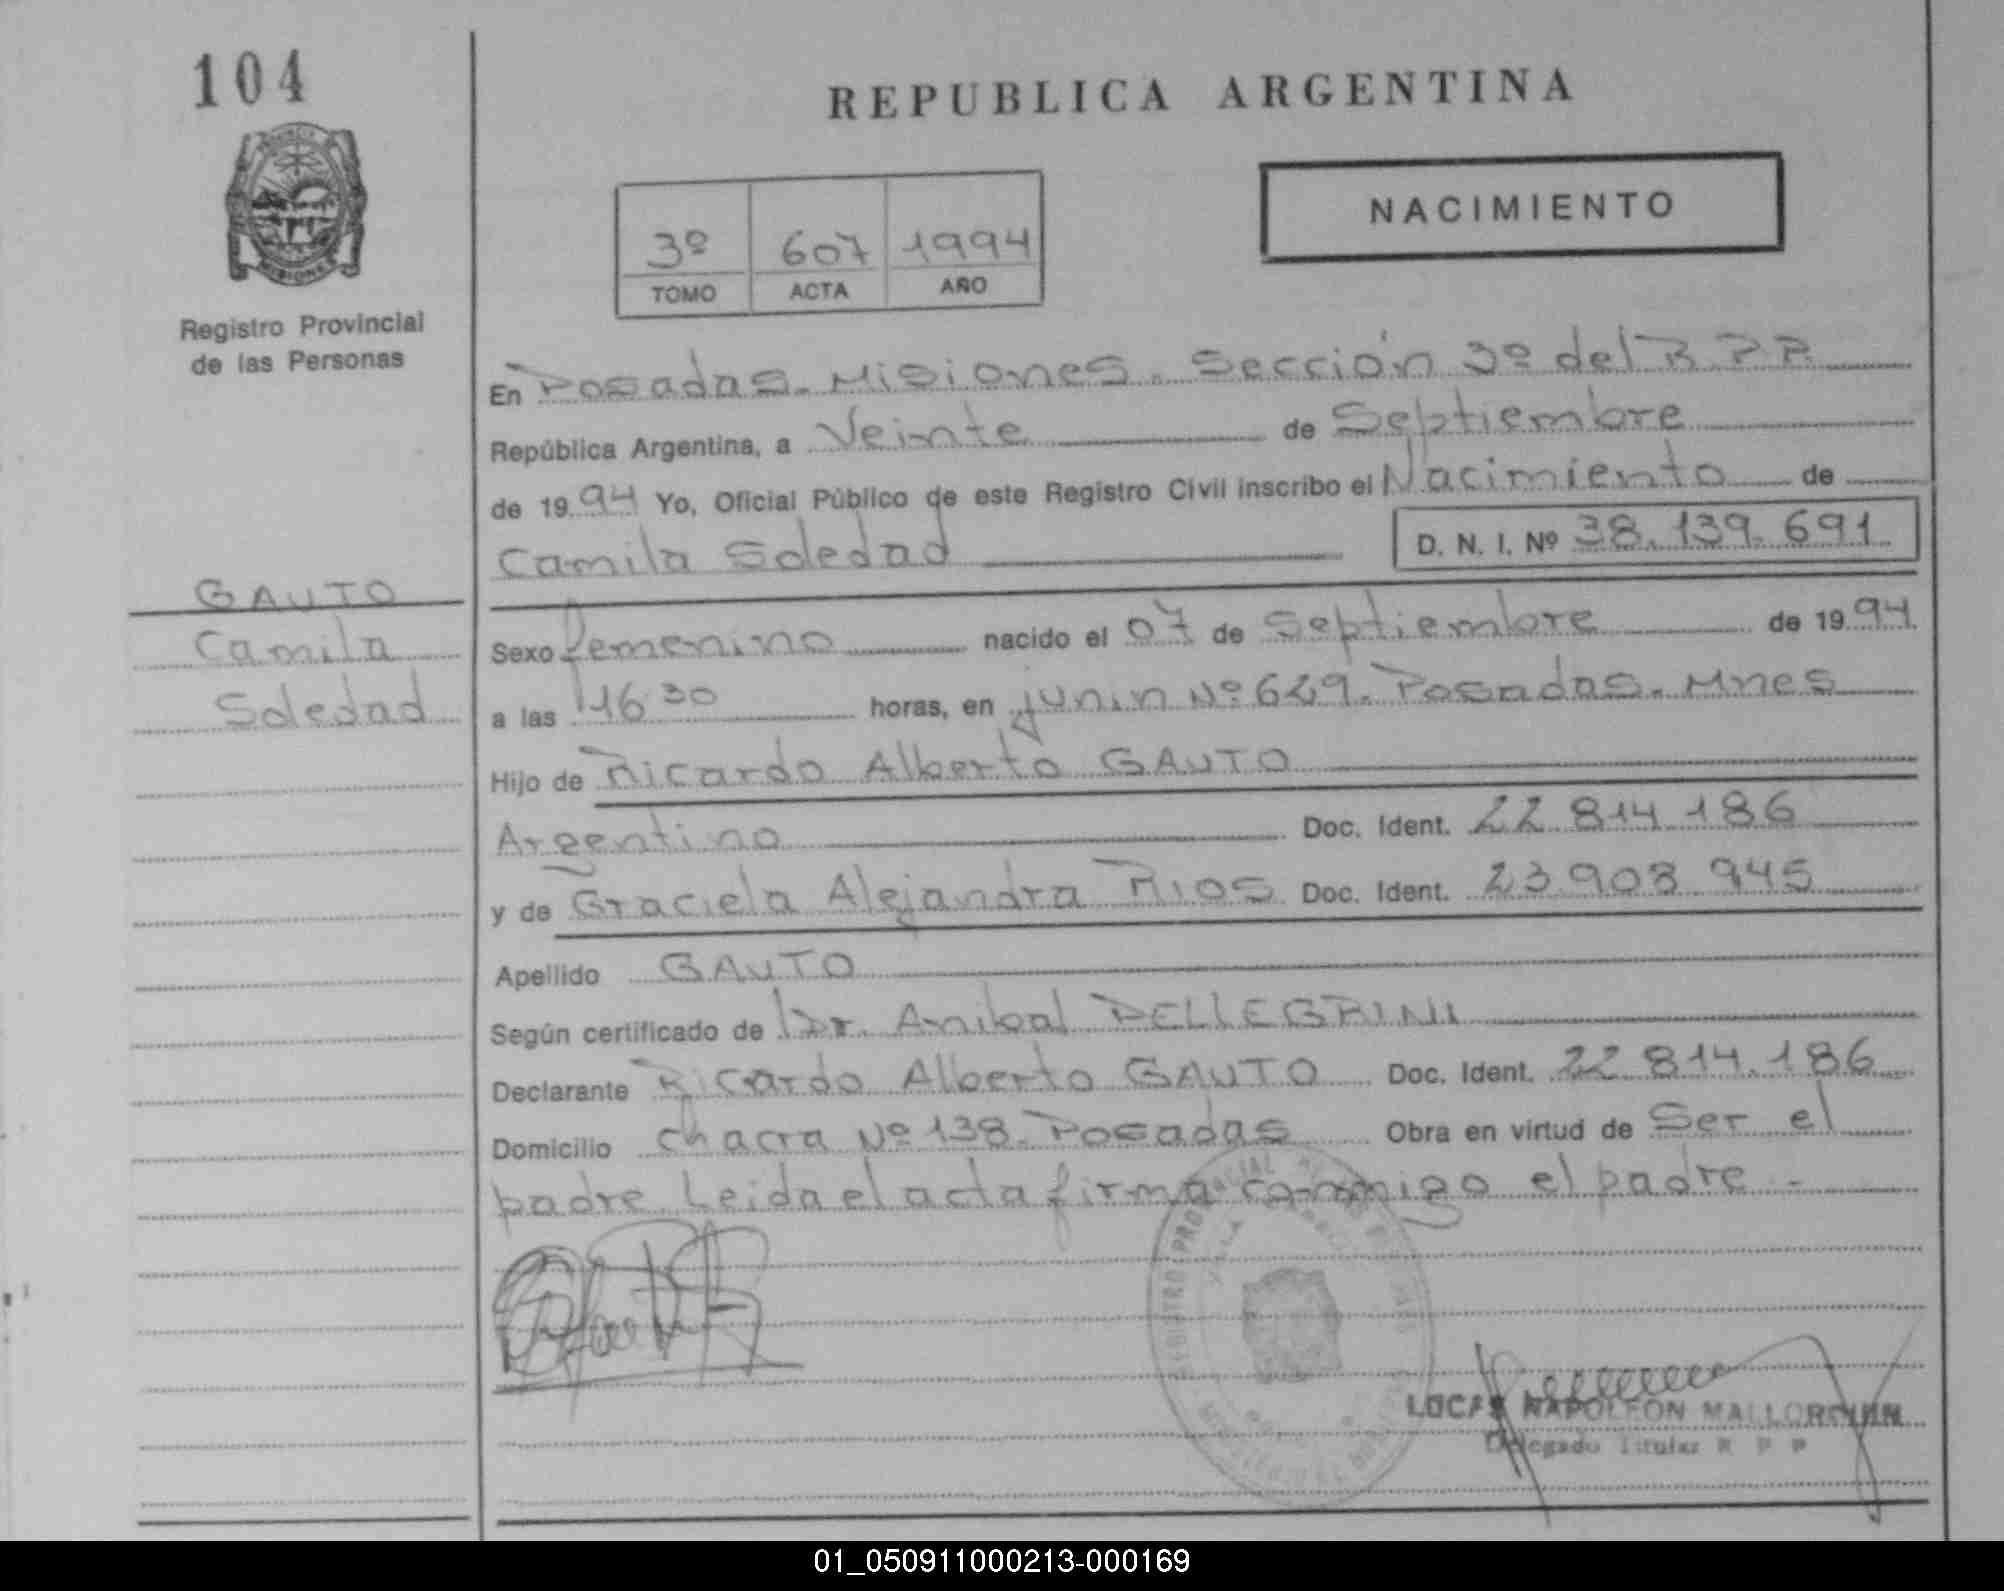 104
REPUBLICA ARGENTINA
NACIMIENTO
3º 607 1994
TOMO ACTA AÑO
MISIONES
Registro Provincial
de las Personas
En Posadas. Misiones. Sección 3º del R.P.P.
República Argentina, a Veinte de Septiembre
de 1994 Yo, Oficial Público de este Registro Civil inscribo el Nacimiento de
Camila Soledad D. N. I. Nº 38.139.691
GAUTO
Camila
Soledad
Sexo femenino nacido el 07 de Septiembre de 1994
a las 16 30 horas, en junin Nº 629. Posadas. Mnes
Hijo de Ricardo Alberto GAUTO
Argentino Doc. Ident. 22 814 186
y de Graciela Alejandra RIOS Doc. Ident. 23 903 945
Apellido GAUTO
Según certificado de Dr. Anibal PELLEGRINI
Declarante Ricardo Alberto GAUTO Doc. Ident. 22 814.186
Domicilio chacra Nº 138. Posadas Obra en virtud de Ser el
padre Leida el acta firma conmigo el padre -
LUCAS NAPOLEON
Delegado Titular R P P
01_050911000213-000169